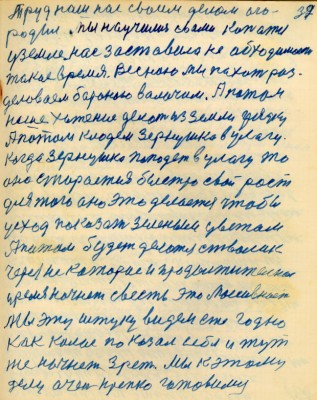 Труд наш нас своим делом ого- 37
родил. Мы научился сдами копати
у земле, нас заставило не обходимость
такое время. Весною мы пахот раз-
деловаем бароною валочим. А потом
наше хитение делоть из земли грядку
А потом кладем Зернушко в улагу.
Когда Зернушко поподет в улагу то
оно старается быстро свой рост
для того оно это делается чтобы
усход показат зеленым цветом
А потом будет делотся стволик
Через не которае и продолжительное
время начнет свесть это
Мы эту штуку видем еже годно
Как колос показал себя и тут
же начнет зреть Мы к этому
делу очен крепко готовимся